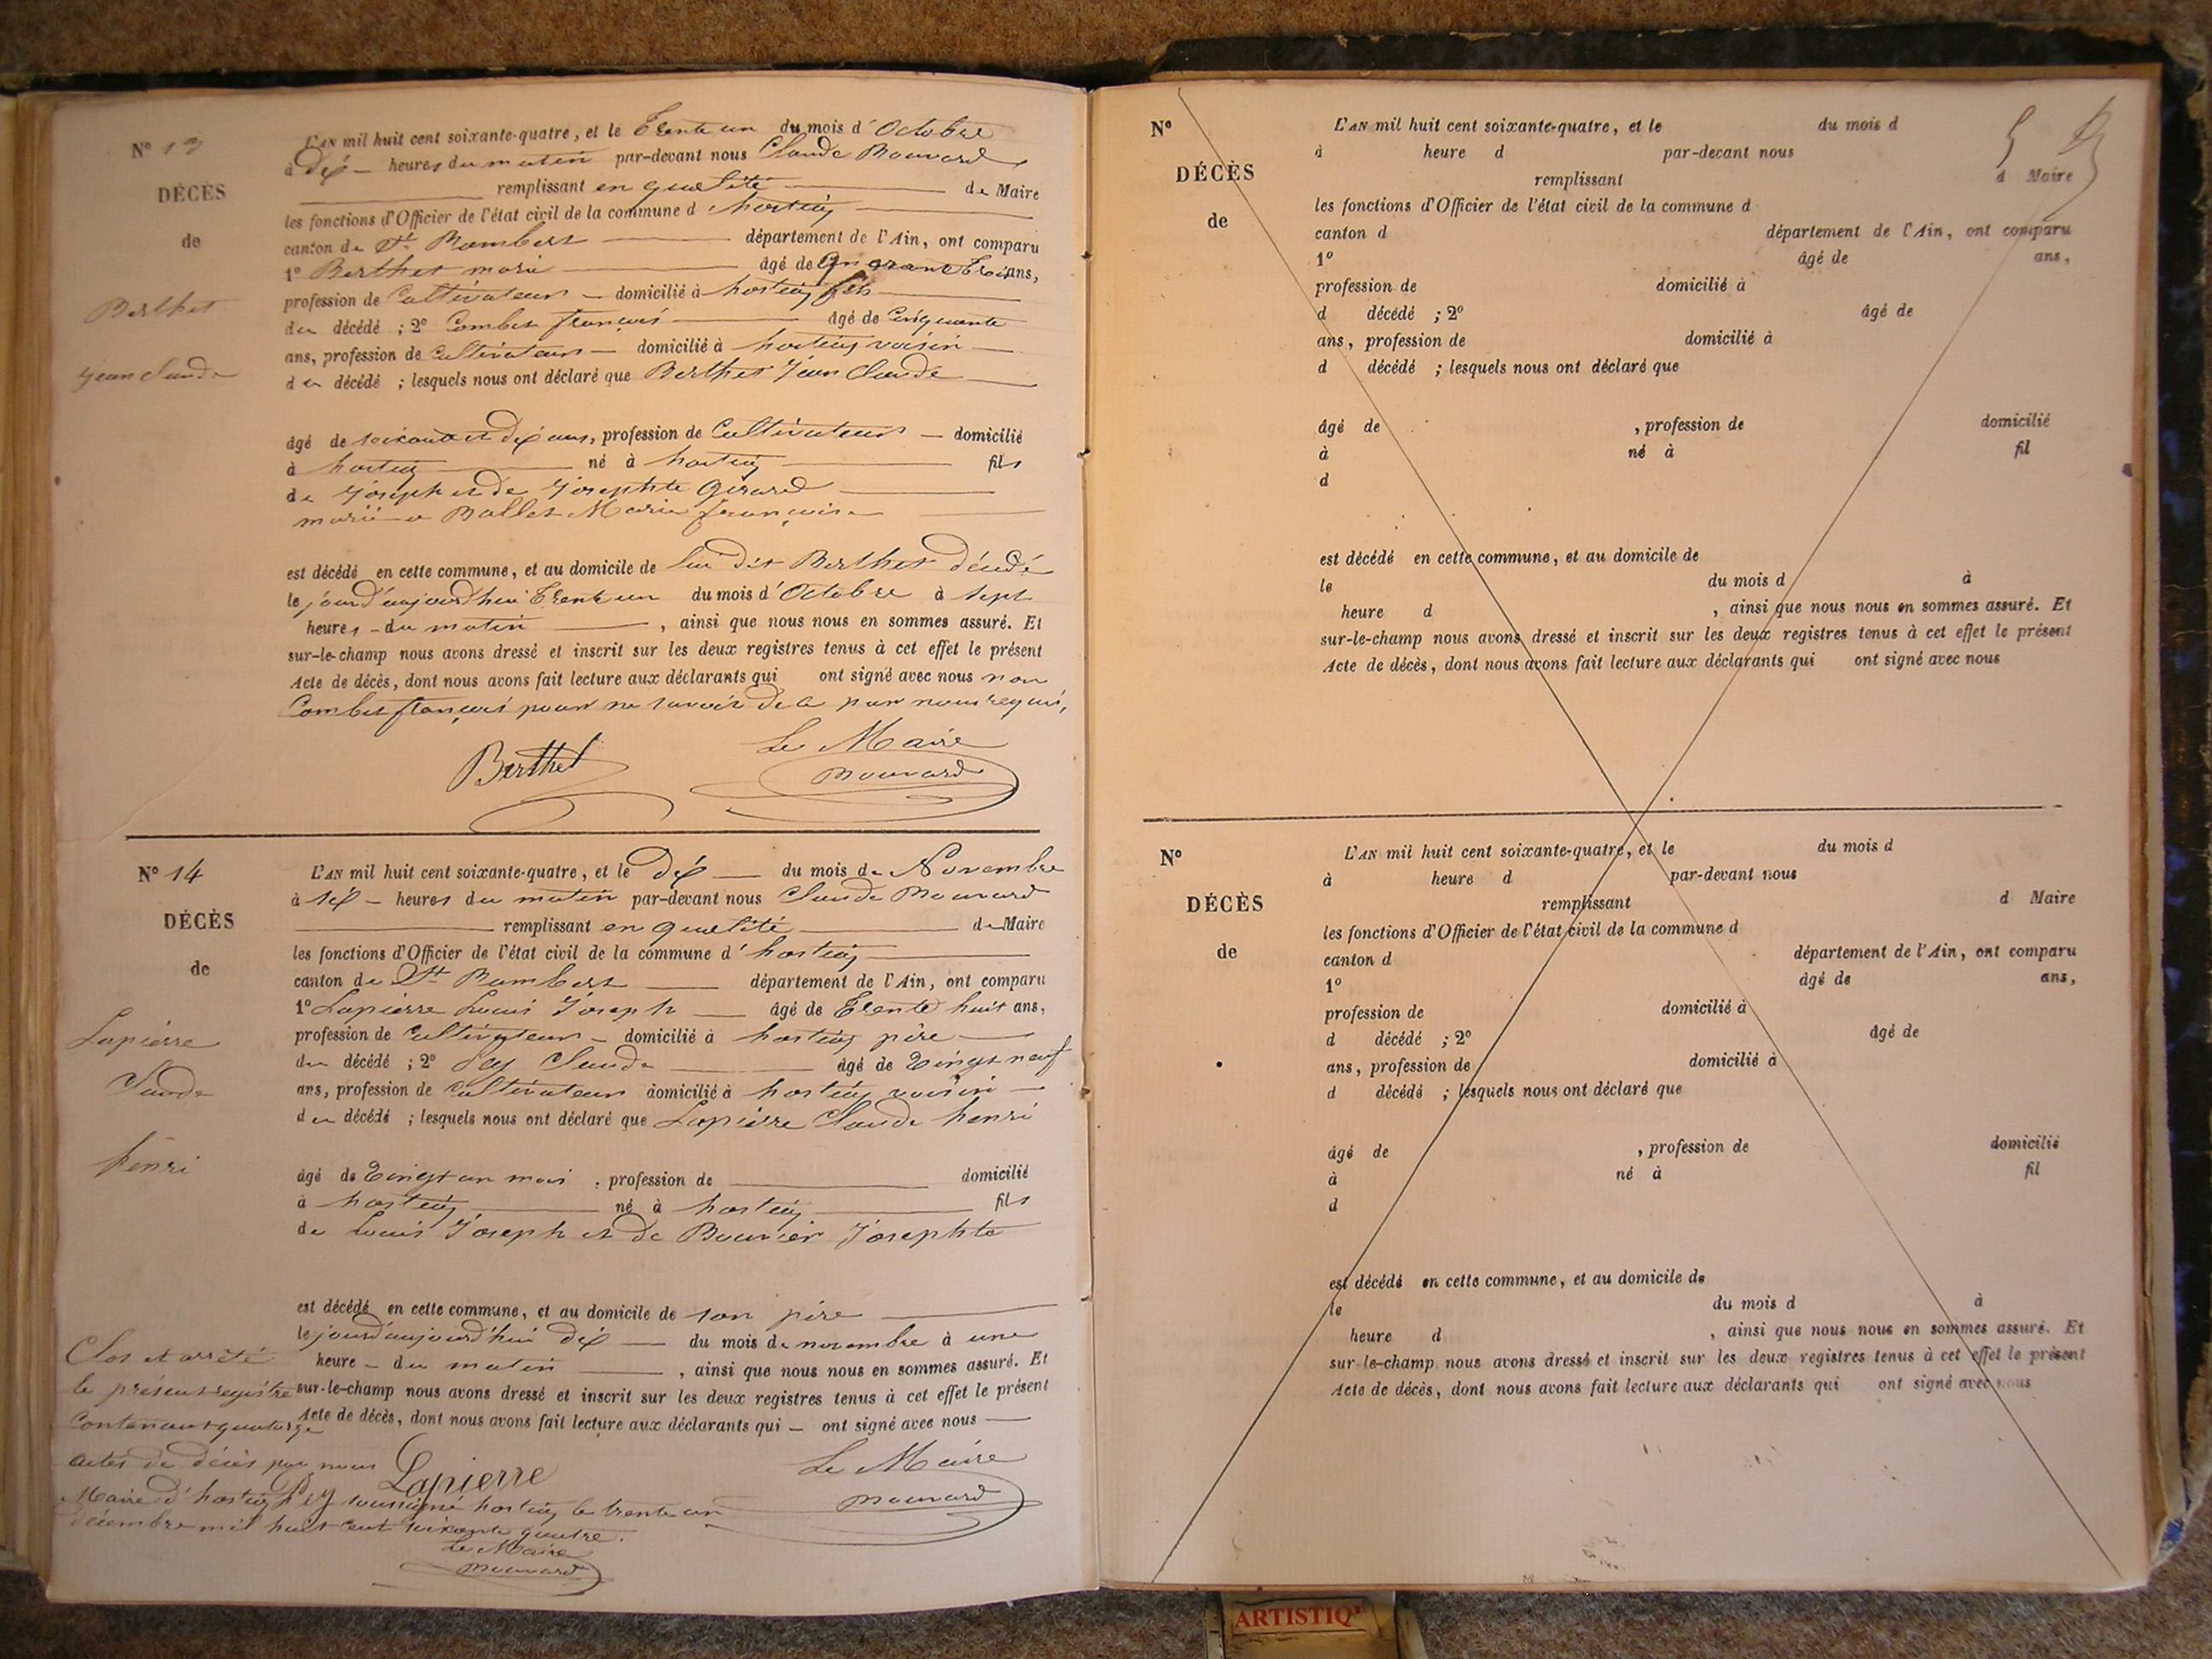 N° 13
DÉCÈS
de
Berthet
jean claude
L'AN mil huit cent soixante-quatre, et le Trente un du mois d'Octobre
à Dix — heures du matin par-devant nous Claude Bouvard
remplissant en qualité de Maire
les fonctions d'Officier de l'état civil de la commune d'hostiaz
canton de St Rambert département de l'Ain, ont comparu
1° Berthet marie âgé de Quarante trois ans,
profession de Cultivateur — domicilié à hostiaz fils
du décédé ; 2° Combet françois âgé de Cinquante
ans, profession de Cultivateur — domicilié à hostiaz voisin
du décédé ; lesquels nous ont déclaré que Berthet Jean Claude
âgé de soixante et Dix ans, profession de Cultivateur — domicilié
à hostiaz né à hostiaz fils
de Joseph et de Josephte Girard
marié a Ballet Marie françoise
est décédé en cette commune, et au domicile de lui dit Berthet décédé
le jourd'aujourd'hui Trente un du mois d'Octobre à sept
heures — du matin , ainsi que nous nous en sommes assuré. Et
sur-le-champ nous avons dressé et inscrit sur les deux registres tenus à cet effet le présent
Acte de décès, dont nous avons fait lecture aux déclarants qui ont signé avec nous non
Combet françois pour ne savoir de ce par nous requis,
Berthet
Le Maire
Bouvard
N° 14
DÉCÈS
de
Lapierre
Claude
henri
L'AN mil huit cent soixante-quatre, et le Dix — du mois de Novembre
à six — heures du matin par-devant nous Claude Bouvard
remplissant en qualité de Maire
les fonctions d'Officier de l'état civil de la commune d'hostiaz
canton de St Rambert département de l'Ain, ont comparu
1° Lapierre Louis Joseph — âgé de Trente huit ans,
profession de Cultivateur — domicilié à hostiaz père
du décédé ; 2° Pey Claude âgé de Vingt neuf
ans, profession de Cultivateur domicilié à hostiaz voisin —
du décédé ; lesquels nous ont déclaré que Lapierre Claude henri
âgé de Vingt un mois , profession de domicilié
à hostiaz né à hostiaz fils
de Louis Joseph et de Bouvier Josephte
est décédé en cette commune, et au domicile de son père
le jourd'aujourd'hui dix — du mois de novembre à une
heure — du matin , ainsi que nous nous en sommes assuré. Et
sur-le-champ nous avons dressé et inscrit sur les deux registres tenus à cet effet le présent
Acte de décès, dont nous avons fait lecture aux déclarants qui — ont signé avec nous —
Lapierre
Pey
Le Maire
Bouvard
Clos et arrêté
le présent registre
Contenant quatorze
actes de décès par nous
Maire d'hostiaz soussigné hostiaz le trente un
décembre mil huit cent soixante quatre.
Le Maire
Bouvard
N°
DÉCÈS
de
L'AN mil huit cent soixante-quatre, et le du mois d
à heure d par-devant nous
remplissant d Maire
les fonctions d'Officier de l'état civil de la commune d
canton d département de l'Ain, ont comparu
1° âgé de ans,
profession de domicilié à
d décédé ; 2° âgé de
ans, profession de domicilié à
d décédé ; lesquels nous ont déclaré que
âgé de , profession de domicilié
à né à fil
d
est décédé en cette commune, et au domicile de
le du mois d à
heure d , ainsi que nous nous en sommes assuré. Et
sur-le-champ nous avons dressé et inscrit sur les deux registres tenus à cet effet le présent
Acte de décès, dont nous avons fait lecture aux déclarants qui ont signé avec nous
N°
DÉCÈS
de
L'AN mil huit cent soixante-quatre, et le du mois d
à heure d par-devant nous
remplissant d Maire
les fonctions d'Officier de l'état civil de la commune d
canton d département de l'Ain, ont comparu
1° âgé de ans,
profession de domicilié à
d décédé ; 2° âgé de
ans, profession de domicilié à
d décédé ; lesquels nous ont déclaré que
âgé de , profession de domicilié
à né à fil
d
est décédé en cette commune, et au domicile de
le du mois d à
heure d , ainsi que nous nous en sommes assuré. Et
sur-le-champ nous avons dressé et inscrit sur les deux registres tenus à cet effet le présent
Acte de décès, dont nous avons fait lecture aux déclarants qui ont signé avec nous
ARTISTIQ